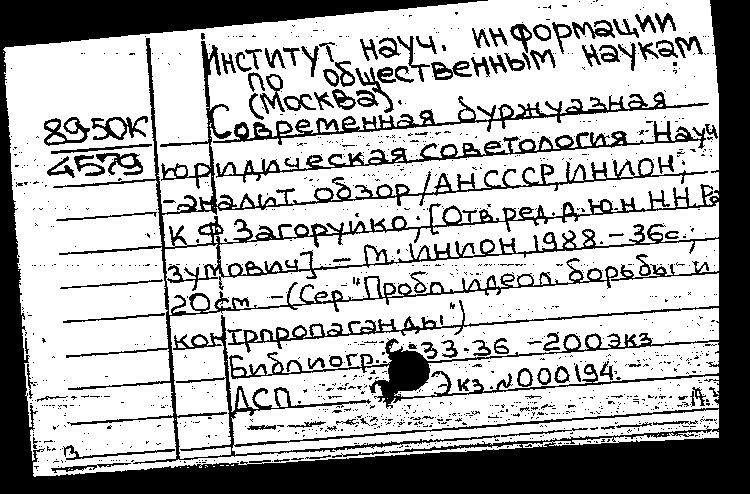 Институт науч. информации
по общественным наукам
(Москва).
89-50К
4579
Современная буржуазная
юридическая советология: Науч.
-аналит. обзор /АН СССР, ИНИОН;
К.Ф. Загоруйко; [Отв. ред. д.ю.н. Н.Н. Ра
зумович]. - М.: ИНИОН, 1988. - 36с.;
20см. - (Сер. "Пробл. идеол. борьбы и
контрпропаганды")
Библиогр.: с. 33-36. - 200экз
ДСП. Экз. №000194.